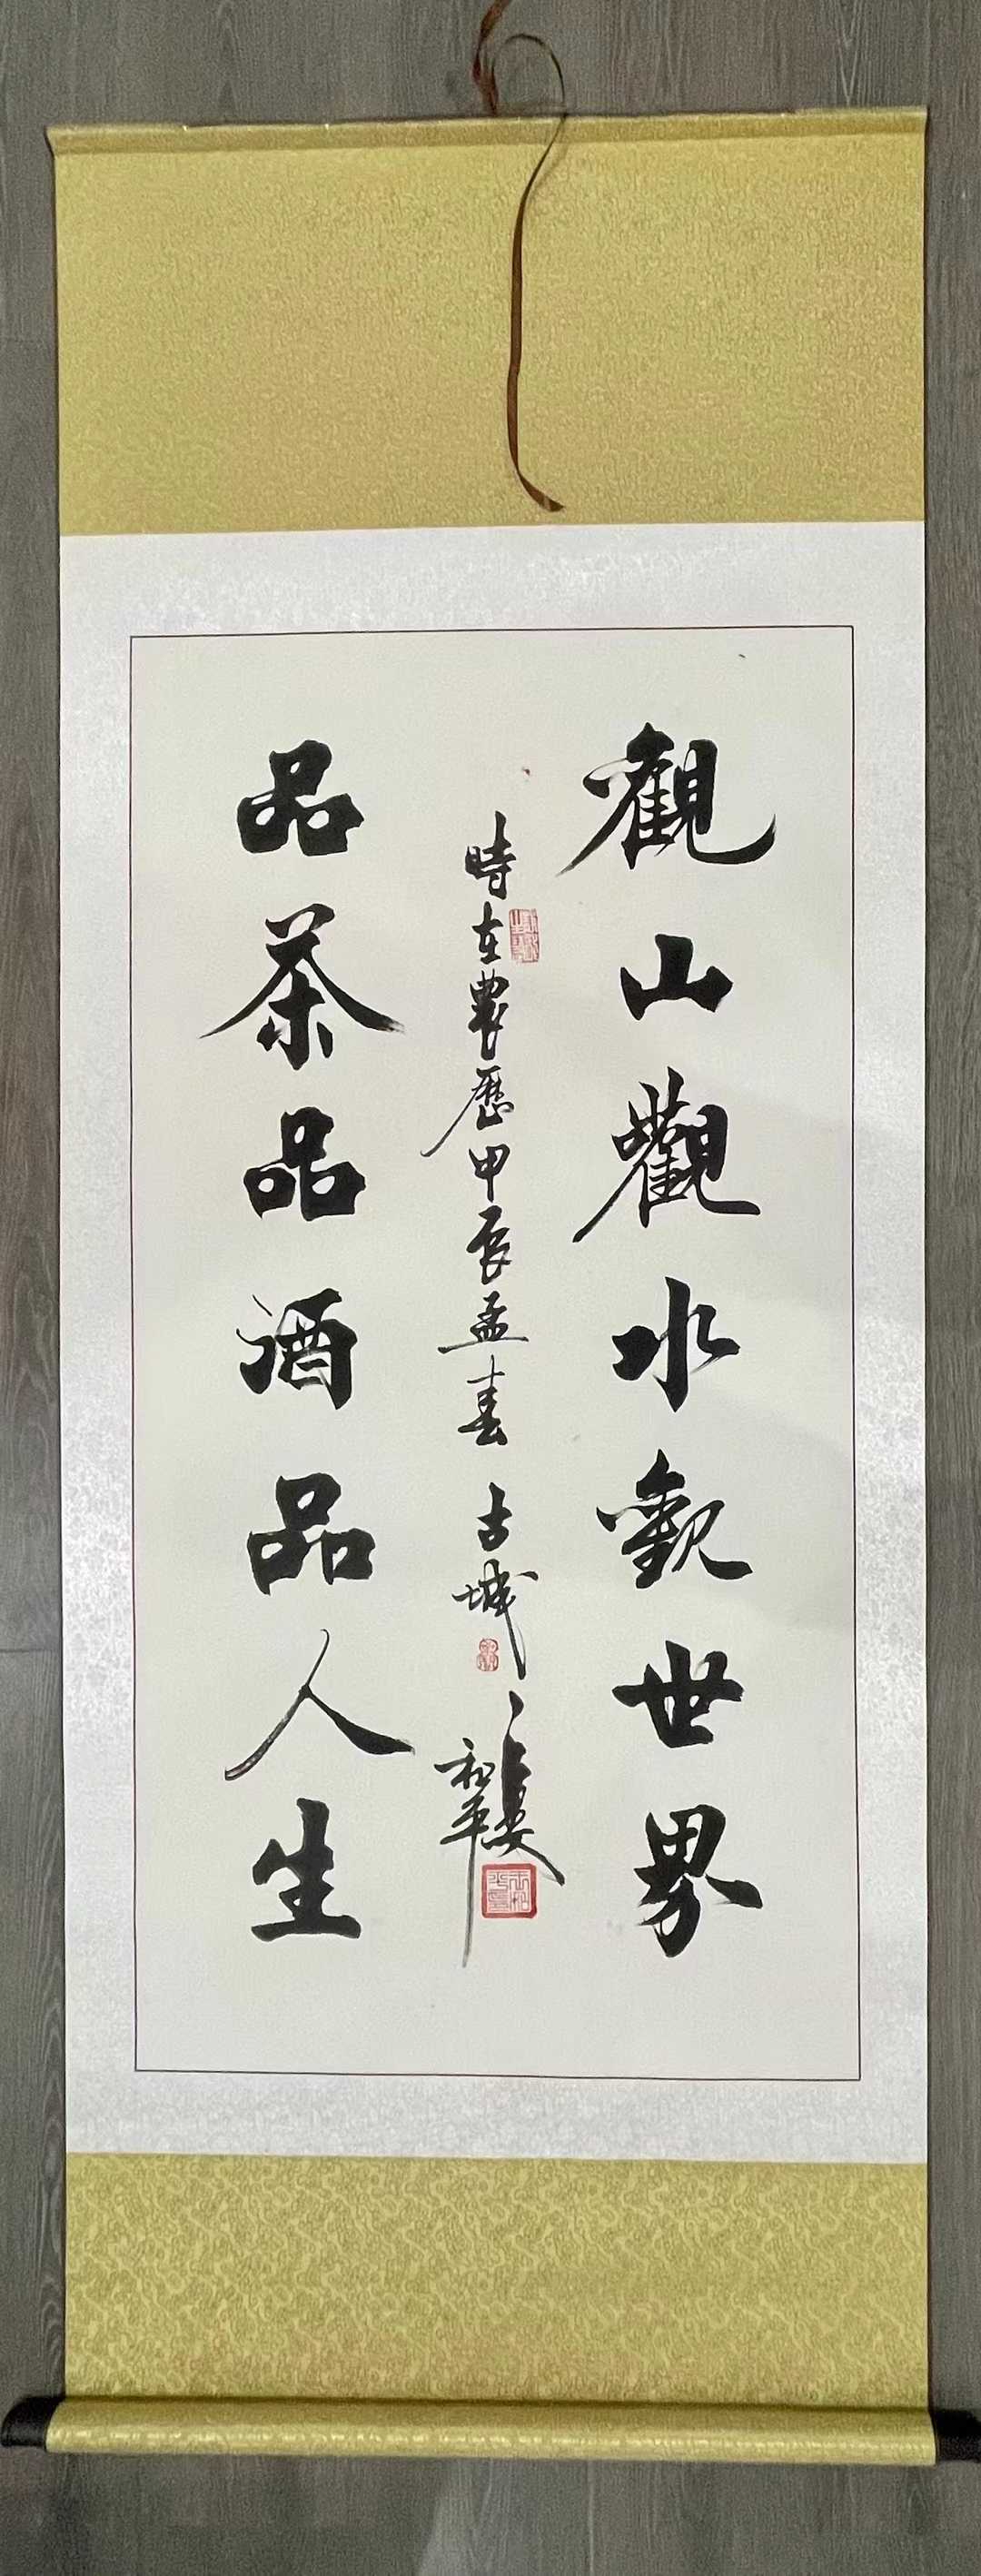 觀山觀水觀世界
時在農歷甲辰孟春古城
和平
品茶品酒品人生